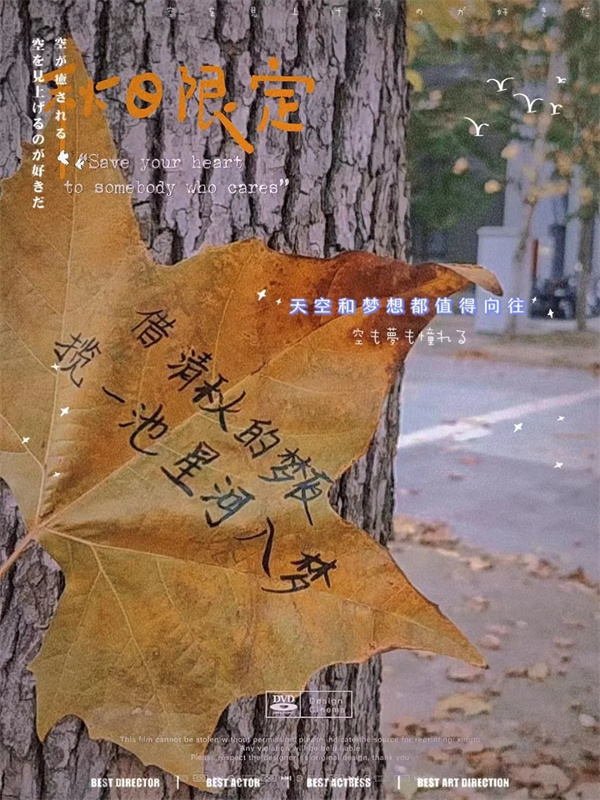 秋日限定
空が癒される
空を見上げるのが好きだ
“Save your heart
to somebody who cares”
天空和梦想都值得向往
空も夢も憧れる
借清秋的梦夜
揽一池星河入梦
DVD
Design
Cinema
This film cannot be stolen without permission, please indicate the source for reprinting:
Any violation will be held liable
Please respect the designer's original design, thank you
BEST DIRECTOR | BEST ACTOR | BEST ACTRESS | BEST ART DIRECTION